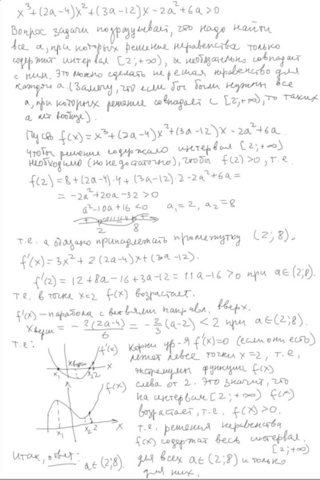 x³+(2a-4)x²+(3a-12)x-2a²+6a>0
Вопрос задачи подразумевает, что надо найти
все a, при которых решение неравенства только
содержит интервал [2;+∞), а необязательно совпадает
с ним. Это можно сделать не решая неравенство для
каждого a. (Замечу, что если бы были нужны все
a, при которых решение совпадает с [2;+∞), то таких
a нет вообще).
Пусть f(x)=x³+(2a-4)x²+(3a-12)x-2a²+6a.
Чтобы решение содержало интервал [2;+∞)
необходимо (но не достаточно), чтобы f(2)>0, т.е
f(2)=8+(2a-4)·4+(3a-12)·2-2a²+6a=
=-2a²+20a-32>0
a²-10a+16<0 a₁=2, a₂=8
2 8
т.е. a обязано принадлежать промежутку (2;8).
f'(x)=3x²+2(2a-4)x+(3a-12).
f'(2)=12+8a-16+3a-12=11a-16>0 при a∈(2;8).
т.е. в точке x=2 f(x) возрастает.
f'(x)-парабола с ветвями направл. вверх.
xверш=-2(2a-4)/6=-2/3(a-2)<2 при a∈(2;8).
т.е: f'(x) Корни ур-я f'(x)=0 (если они есть)
xверш лежат левее точки x=2, т.е,
x₁ x₂ 2 x экстремумы функции f(x)
f(x) слева от 2. Это значит, что
на интервале [2;+∞) f(x)
возрастает, т.е. f(x)>0.
x₁ x₂ 2 x т.е. решения неравенства
f(x) содержат весь интервал
[2;+∞)
Итак, ответ: a∈(2;8). для всех a∈(2;8) и только
для них.